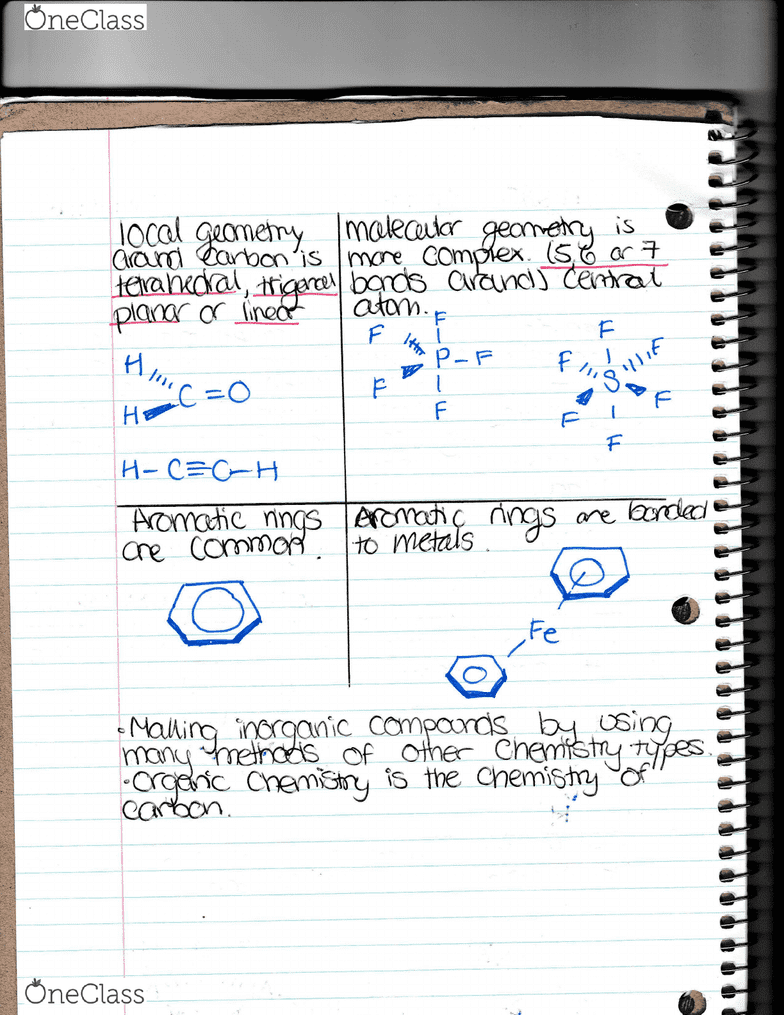 OneClass
local geometry
around carbon is
tetrahedral, trigonal
planar or linear
H
H
C=O
H-C≡C-H
molecular geometry is
more complex. (5,6 or 7
bonds around) central
atom.
F
F
P-F
F
F
F
F
F
S
F
F
F
Aromatic rings
are common.
Aromatic rings are bonded
to metals.
Fe
•Making inorganic compounds by using
many methods of other Chemistry types.
•Organic Chemistry is the chemistry of
carbon.
OneClass